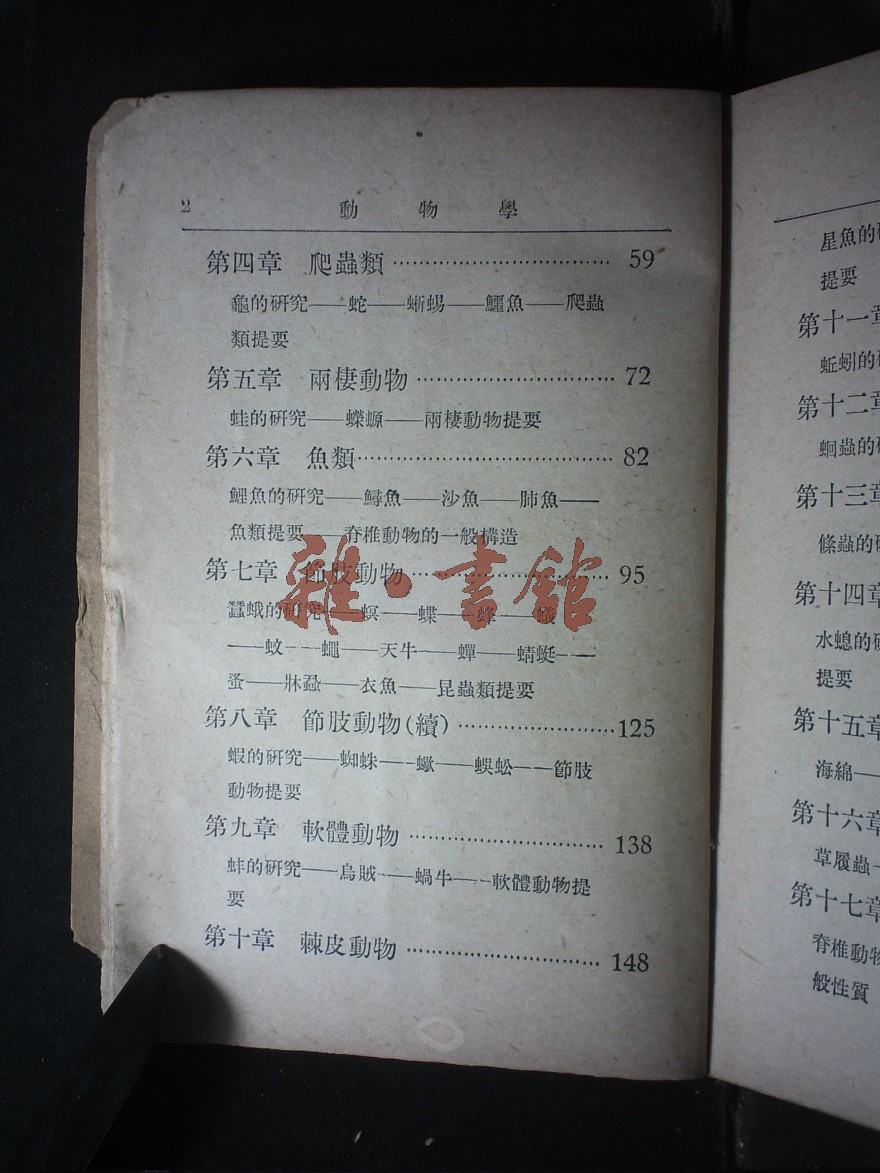 2 動物學
第四章 爬蟲類 …………………………… 59
龜的研究——蛇——蜥蜴——鱷魚——爬蟲
類提要
第五章 兩棲動物 ………………………… 72
蛙的研究——蠑螈——兩棲動物提要
第六章 魚類………………………………… 82
鯉魚的研究——鱘魚——沙魚——肺魚——
魚類提要——脊椎動物的一般構造
第七章 節肢動物 ………………………… 95
蠶蛾的研究——螟——蝶——蜂——蟻
——蚊——蠅——天牛——蟬——蜻蜓——
蚤——牀蝨——衣魚——昆蟲類提要
第八章 節肢動物(續) ……………………125
蝦的研究——蜘蛛——蠍——蜈蚣——節肢
動物提要
第九章 軟體動物 ………………………… 138
蚌的研究——烏賊——蝸牛——軟體動物提
要
第十章 棘皮動物 ………………………… 148
雜·書館
星魚的
提要
第十一章
蚯蚓的
第十二章
蛔蟲的
第十三章
絛蟲的
第十四章
水螅的
提要
第十五章
海綿—
第十六章
草履蟲—
第十七章
脊椎動物
般性質